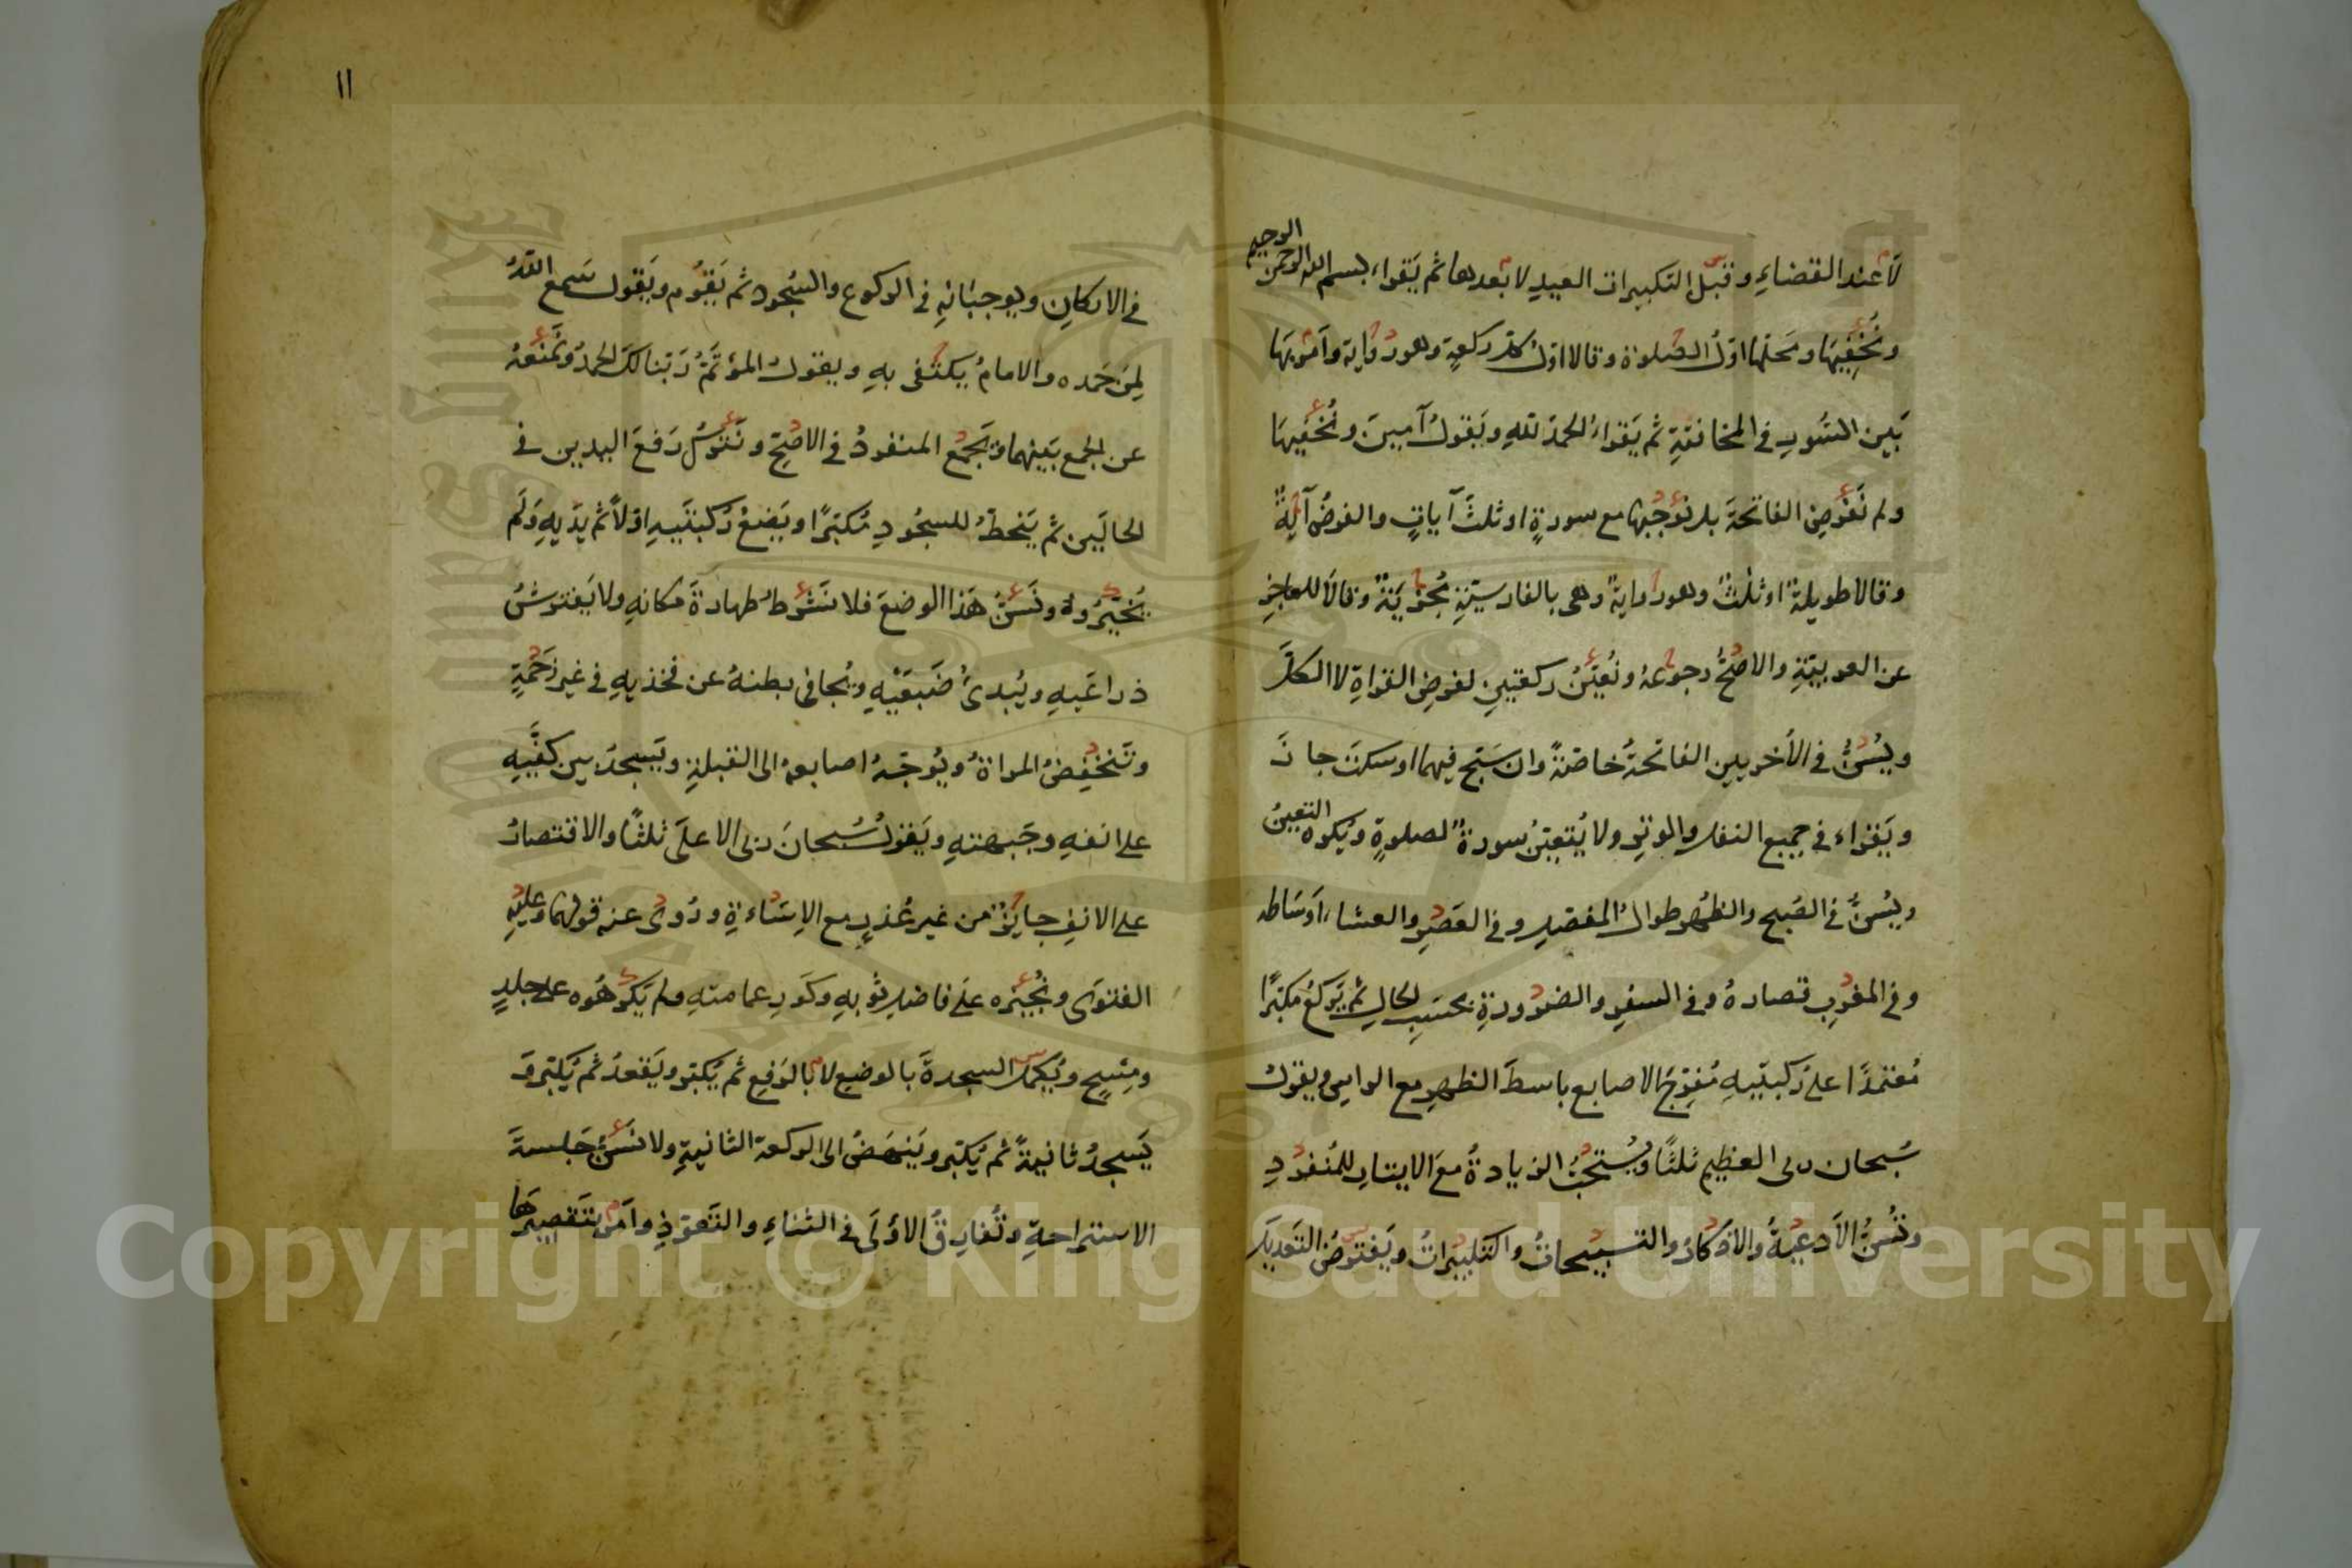 لَا عند القضاءِ وقبل التكبيرات العيد لا بعدها ثم يَقراء بسم الله الرحمن الرحيم
ونُخفِيهَا ومَحلها اول الصلوة وقالا اول كل ركعةٍ وهو رواية وأمر بها
بَين السُورِ في المخافتةِ ثم يَقراءُ الحمد لله ويَقولُ آمين ونُخفيهَا
ولم نَفرِضِ الفاتحةَ بل نُوجِبُها مع سورةٍ او ثلثَ آياتٍ والفرضُ آيةٌ
وقالا طويلةٌ او ثلثٌ وهو رواية وهى بالفارسيّةِ مُجزِيَةٌ وقالا للعاجزِ
عن العربيّةِ والاصحُّ رجوعُهُ ونُعيّنُ ركعتينِ لفرضِ القراةِ لا الكلَّ
ويُسَنُّ في الأخريين الفاتحةُ خاصّةً وان سَبّح فيهما او سكتَ جازَ
ويَقراء في جميع النفلِ والوترِ ولا يُتعيّنُ سورةٌ لصلوةٍ ويُكره التعيينُ
ويُسَنُّ في الصُبح والظُهرِ طوالُ المفصّلِ وفي العَصرِ والعشاء اَوسَاطه
وفي المغرِبِ قصارهُ وفي السفرِ والضرُورةِ بحسَبِ الحالِ ثم يَركعُ مكبّرًا
مُعتمدًا على رُكبتَيهِ مُفرّجَ الاصابعِ باسطَ الظهرِ مع الراسِ ويقولُ
سُبحان ربى العظيمِ ثلثًا ويُستحَبُّ الزيادةُ مع الايتارِ للمُنفردِ
وتُسَنُّ الأدعيةُ والاذكارُ والتسبيحاتُ والتكبيراتُ ويَفترِضُ التعديلَ
١١
في الاركانِ ويوجبَانِهِ في الركوع والسُجود ثم يَقوُم ويَقول سَمع اللّهُ
لِمن حَمده والامامُ يكتَفى بهِ ويقولُ المؤتَمُّ رَبّنا لكَ الحمدُ ونَمنَعهُ
عن الجمع بَينهما ويَجمَعُ المنفردُ في الاصَحّ ونَترُكُ رَفعَ اليدين في
الحالَين ثم يَنحَطُّ للسجُودِ مُكبّرًا ويَضعُ رُكبتَيهِ اوّلاً ثم يدَيهِ ولَم
يُخَيّرُوه ونَسُنُّ هَذا الوضعَ فلا نَشرُطُ طهارةَ مَكانهِ ولا يَفترِشُ
ذراعَيهِ ويُبدىُ ضَبعَيْهِ ويُجافى بطنهُ عن فخذيهِ في غير زَحمَةٍ
وتَنخفِضُ المراةُ ويُوَجّهُ اصابعهُ الى القبلةِ ويَسجدُ بين كفّيهِ
على انفهِ وجَبهتهِ ويَقولُ سُبحانَ ربى الاعلَى ثلثًا والاقتصارُ
على الانفِ جايزٌ من غير عُذرٍ مع الاِسَاءةِ ورُوِىَ عنه قولهما وعليهِ
الفتوَى ونُجيزه علَى فاضلِ ثوبهِ وكَورِ عمامتهِ ولم يَكرَهُوه على جلدٍ
ومِسْحٍ ويُكمل السجدةَ بالوضعِ لا بالرَفعِ ثم يُكبّر ويَقعدُ ثم يُكبّر وَ
يَسجدُ ثانيةً ثم يُكبّر ويَنهَضُ الى الركعة الثانيةِ ولا نَسُنُّ جَلسةَ
الاستراحةِ وتُفارِقُ الاوُلَى في الثناءِ والتَعوّذِ وامَر بتَقصِيرهَا
Copyright © King Saud University
King Saud University
1957